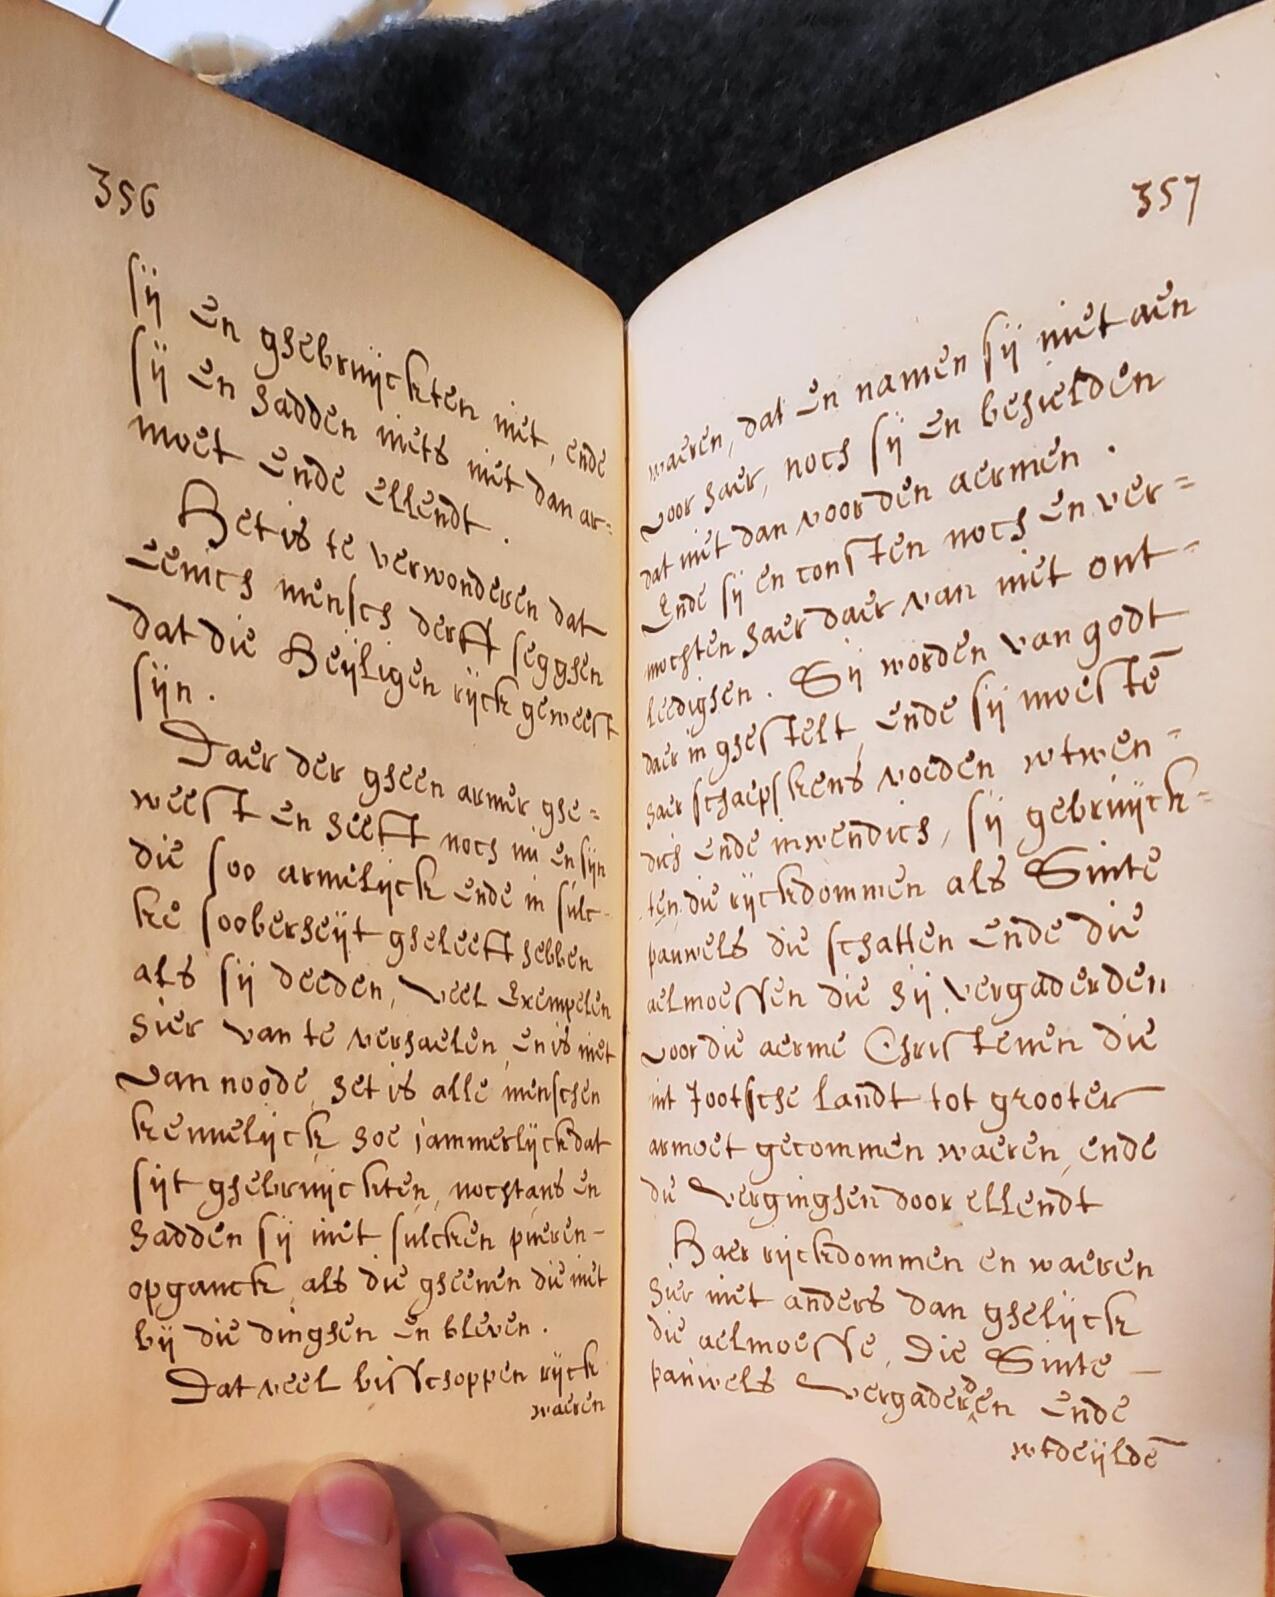 356
sij en ghebruijckten niet, ende
sij en hadden niets niet dan ar=
moet ende ellendt.
Het is te verwonderen dat
eenich mensch derft segghen
dat die Heijligen rijck geweest
sijn.
Daer der gheen armer ghe=
weest en heeft noch nu en sijn
die soo armelijck ende in sulc-
ke sooberheijt gheleeft hebben
als sij deeden, veel Exempelen
hier van te verhaelen en is niet
van noode, het is alle menschen
kennelijck hoe jammerlijck dat
sijt ghebruijckten, nochtans en
hadden sij niet sulcken pueren-
opganck als die gheenen die niet
bij die dinghen en bleven.
Dat veel bisschoppen rijck
waeren
357
waeren, dat en namen sij niet aen
voor haer, noch sij en behielden
dat niet dan voor den aermen.
Ende sij en consten noch en ver=
mochten haer daer van niet ont-
leedighen. Sij worden van godt
daer in ghestelt, ende sij moestē
haer schaepskens voeden wtwen=
dich ende inwendich, sij gebruijck=
ten die rijckdommen als Sinte
pauwels die schatten ende die
aelmoessen die hij vergaderden
voor die aerme Christenen die
int Jootsche landt tot grooter
armoet gecommen waeren, ende
die verginghen door ellendt
Haer rijckdommen en waeren
hier niet anders dan ghelijck
die aelmoesse, Die Sinte
pauwels vergaderden ende
wtdeijldē